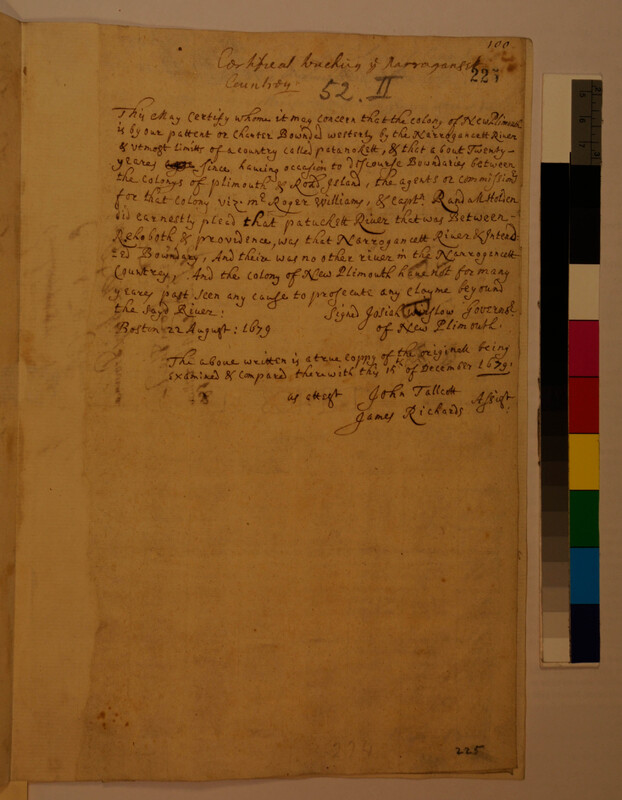 100
Certificat touching ye Narragansett
223
Country
52. II
This May Certify whome it may concern that the colony of New Plimouth
is by our pattent or Charter Bounded westerly by the Narrogancett River
& vtmost limits of a country called patanokett, & that about Twenty-
yeares since hauing occasion to discourse Boundaries between
the colonys of plimouth & Road Island, the agents or commissionrs
for that colony viz: mr Roger Williams, & Captn Randall Holden
did earnestly plead that patuckett River that was Between-
Rehoboth & providence, was that Narrogancett River & Intend-
ed Boundary, And there was no other river in the Narrogancett
Countrey, And the colony of New Plimouth haue not for many
yeares past seen any cause to prosecute any clayme beyound
the Said River: Signd Josiah Winslow Governr
Boston 22 August: 1679 of New Plimouth.
The aboue written is a true coppy of the originall being
examined & compared therewith this 15th of December 1679.
as attest John Tallcott Assist:
James Richards
225